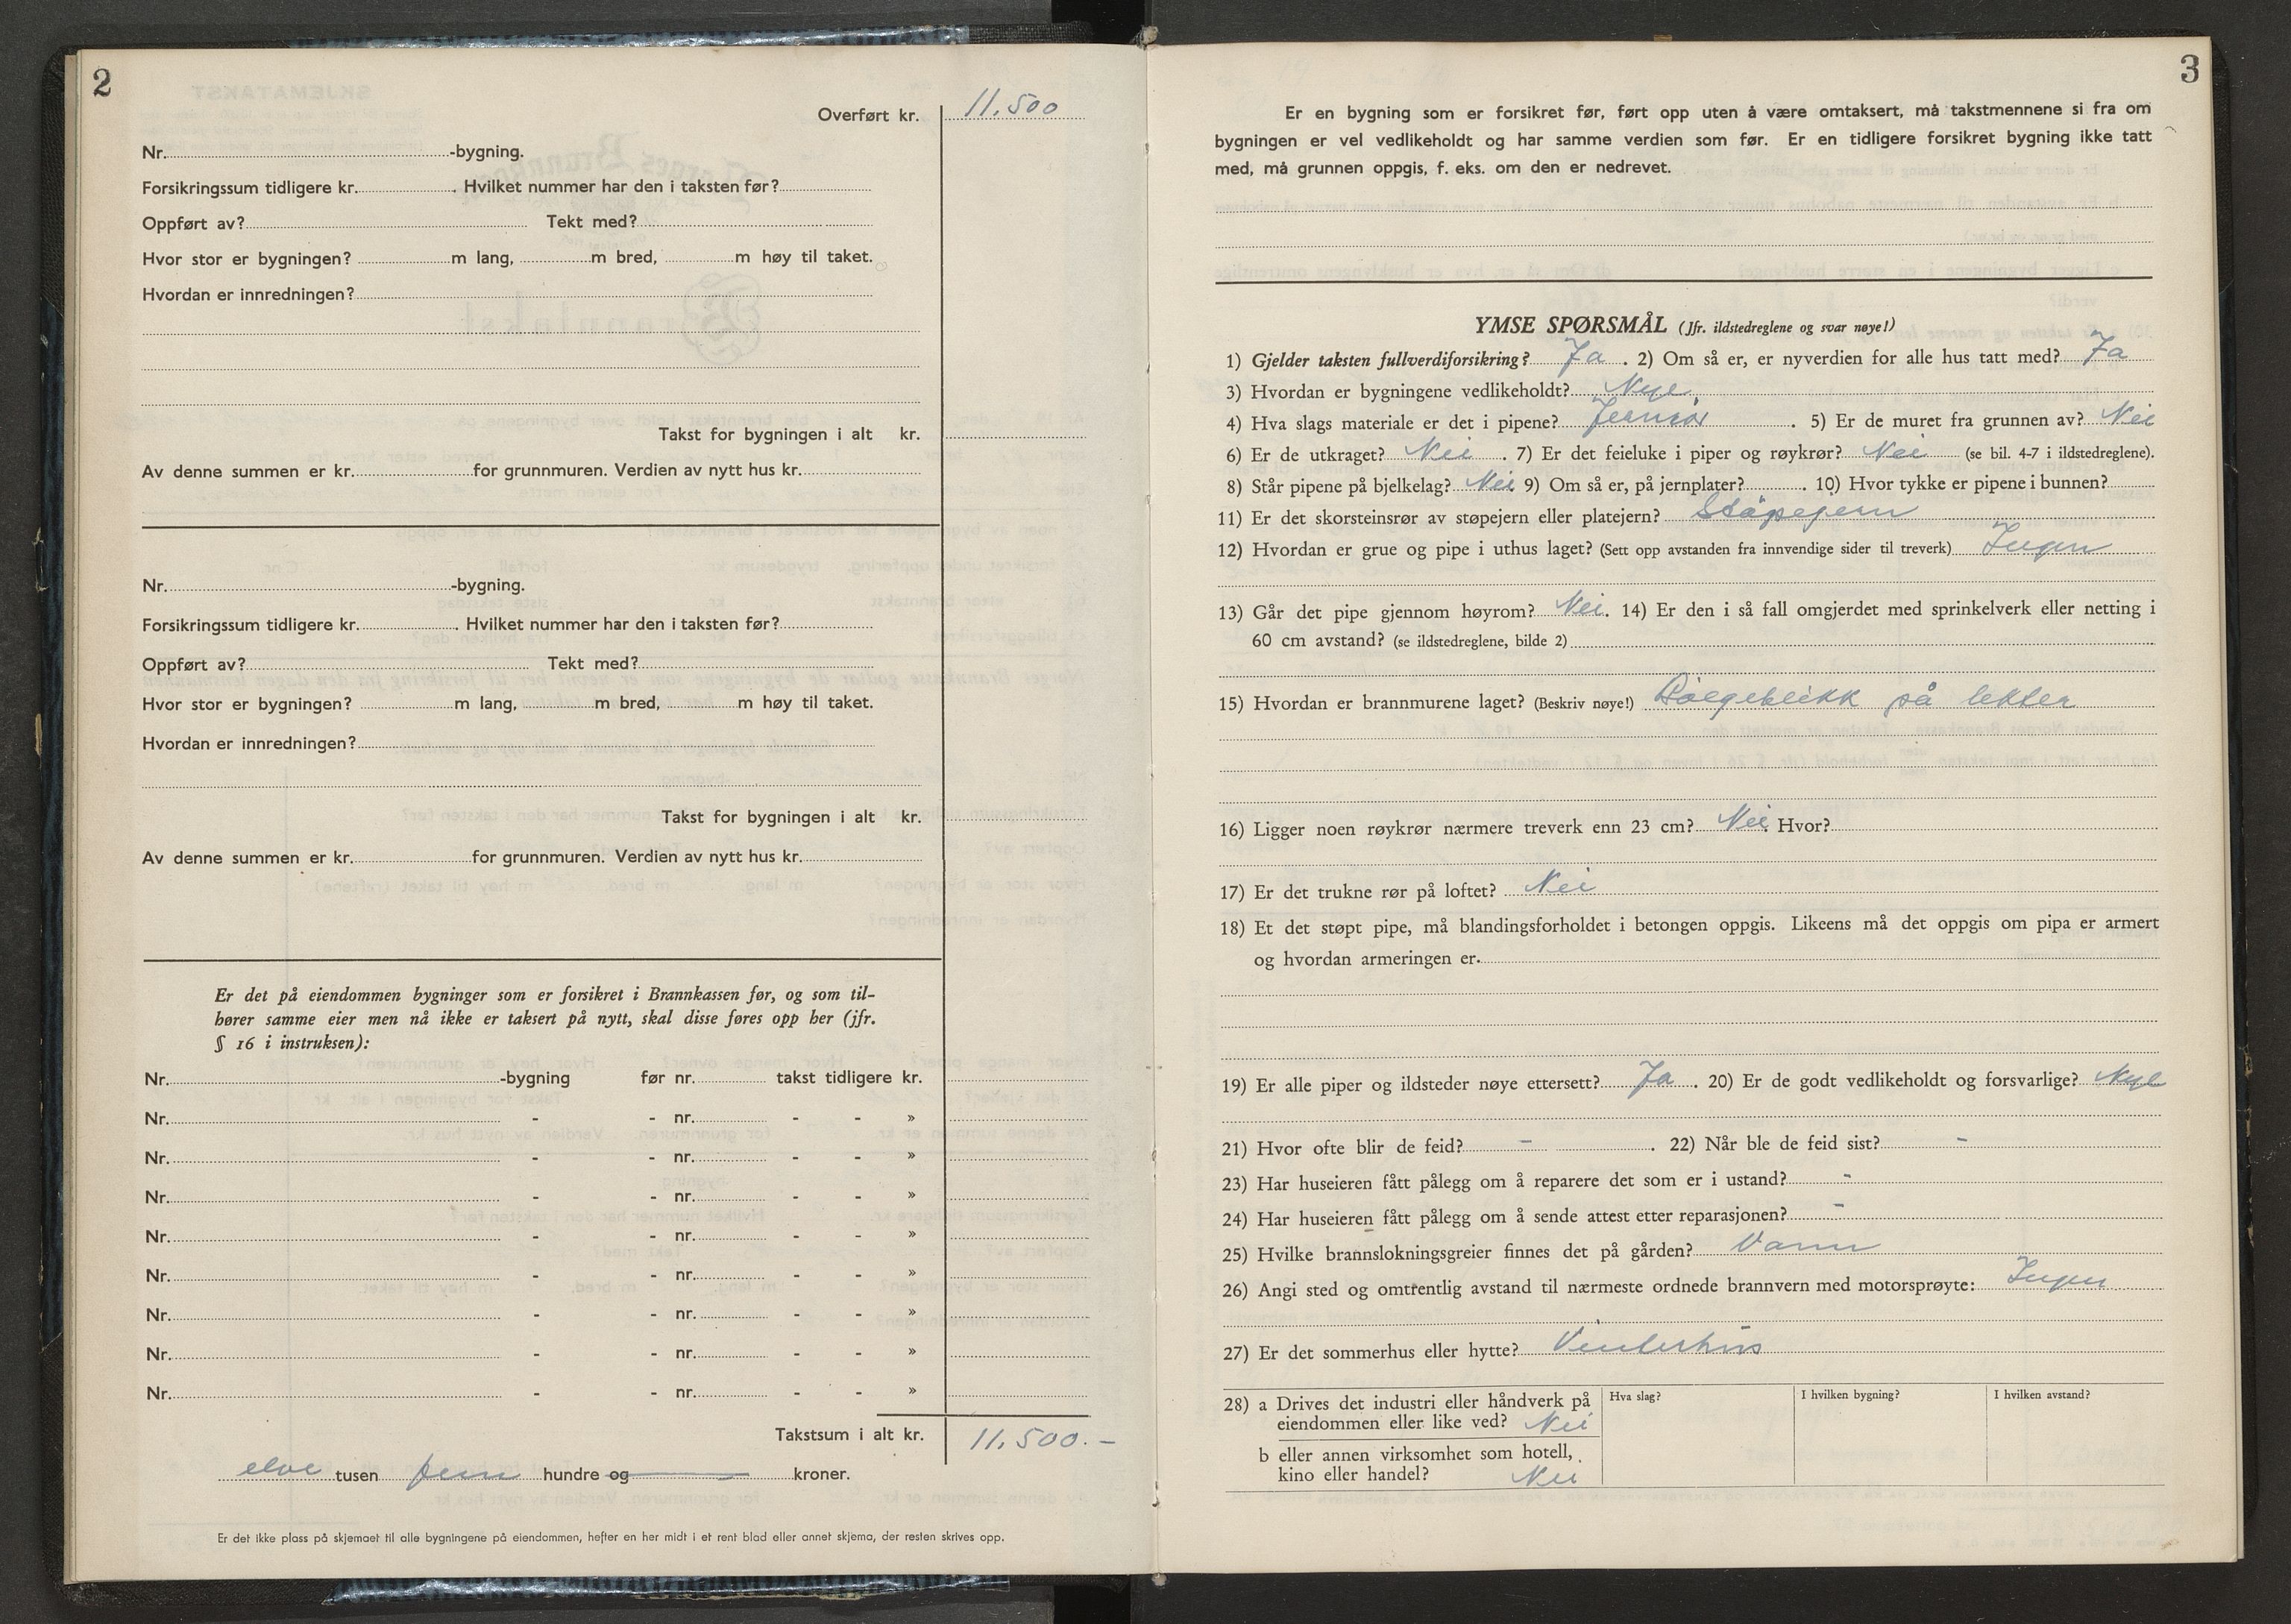 2
Overført kr. 11.500
Nr. -bygning.
Forsikringssum tidligere kr. . Hvilket nummer har den i taksten før?
Oppført av? Tekt med?
Hvor stor er bygningen? m lang, m bred, m høy til taket.
Hvordan er innredningen?
Takst for bygningen i alt kr.
Av denne summen er kr. for grunnmuren. Verdien av nytt hus kr.
Nr. -bygning.
Forsikringssum tidligere kr. . Hvilket nummer har den i taksten før?
Oppført av? Tekt med?
Hvor stor er bygningen? m lang, m bred, m høy til taket.
Hvordan er innredningen?
Takst for bygningen i alt kr.
Av denne summen er kr. for grunnmuren. Verdien av nytt hus kr.
Er det på eiendommen bygninger som er forsikret i Brannkassen før, og som til-
hører samme eier men nå ikke er taksert på nytt, skal disse føres opp her (jfr.
§ 16 i instruksen):
Nr. -bygning før nr. takst tidligere kr.
Nr. - - nr. - - »
Nr. - - nr. - - »
Nr. - - nr. - - »
Nr. - - nr. - - »
Nr. - - nr. - - »
Nr. - - nr. - - »
Nr. - - nr. - - »
Nr. - - nr. - - »
Takstsum i alt kr. 11.500.-
elve tusen fem hundre og kroner.
Er det ikke plass på skjemaet til alle bygningene på eiendommen, hefter en her midt i et rent blad eller annet skjema, der resten skrives opp.
3
Er en bygning som er forsikret før, ført opp uten å være omtaksert, må takstmennene si fra om
bygningen er vel vedlikeholdt og har samme verdien som før. Er en tidligere forsikret bygning ikke tatt
med, må grunnen oppgis, f. eks. om den er nedrevet.
YMSE SPØRSMÅL (Jfr. ildstedreglene og svar nøye!)
1) Gjelder taksten fullverdiforsikring? Ja . 2) Om så er, er nyverdien for alle hus tatt med? Ja
3) Hvordan er bygningene vedlikeholdt? Nye.
4) Hva slags materiale er det i pipene? Jernrør . 5) Er de muret fra grunnen av? Nei
6) Er de utkraget? Nei . 7) Er det feieluke i piper og røykrør? Nei (se bil. 4-7 i ildstedreglene).
8) Står pipene på bjelkelag? Nei 9) Om så er, på jernplater? . 10) Hvor tykke er pipene i bunnen?
11) Er det skorsteinsrør av støpejern eller platejern? Støpejern
12) Hvordan er grue og pipe i uthus laget? (Sett opp avstanden fra innvendige sider til treverk) Ingen
13) Går det pipe gjennom høyrom? Nei. 14) Er den i så fall omgjerdet med sprinkelverk eller netting i
60 cm avstand? (se ildstedreglene, bilde 2)
15) Hvordan er brannmurene laget? (Beskriv nøye!) Bølgeblikk på lekter
16) Ligger noen røykrør nærmere treverk enn 23 cm? Nei. Hvor?
17) Er det trukne rør på loftet? Nei
18) Et det støpt pipe, må blandingsforholdet i betongen oppgis. Likeens må det oppgis om pipa er armert
og hvordan armeringen er.
19) Er alle piper og ildsteder nøye ettersett? Ja . 20) Er de godt vedlikeholdt og forsvarlige? Nye
21) Hvor ofte blir de feid? - . 22) Når ble de feid sist? -
23) Har huseieren fått pålegg om å reparere det som er i ustand? -
24) Har huseieren fått pålegg om å sende attest etter reparasjonen? -
25) Hvilke brannslokningsgreier finnes det på gården? Vann
26) Angi sted og omtrentlig avstand til nærmeste ordnede brannvern med motorsprøyte: Ingen
27) Er det sommerhus eller hytte? Vinterhus
28) a Drives det industri eller håndverk på Hva slag? I hvilken bygning? I hvilken avstand?
eiendommen eller like ved? Nei
b eller annen virksomhet som hotell,
kino eller handel? Nei